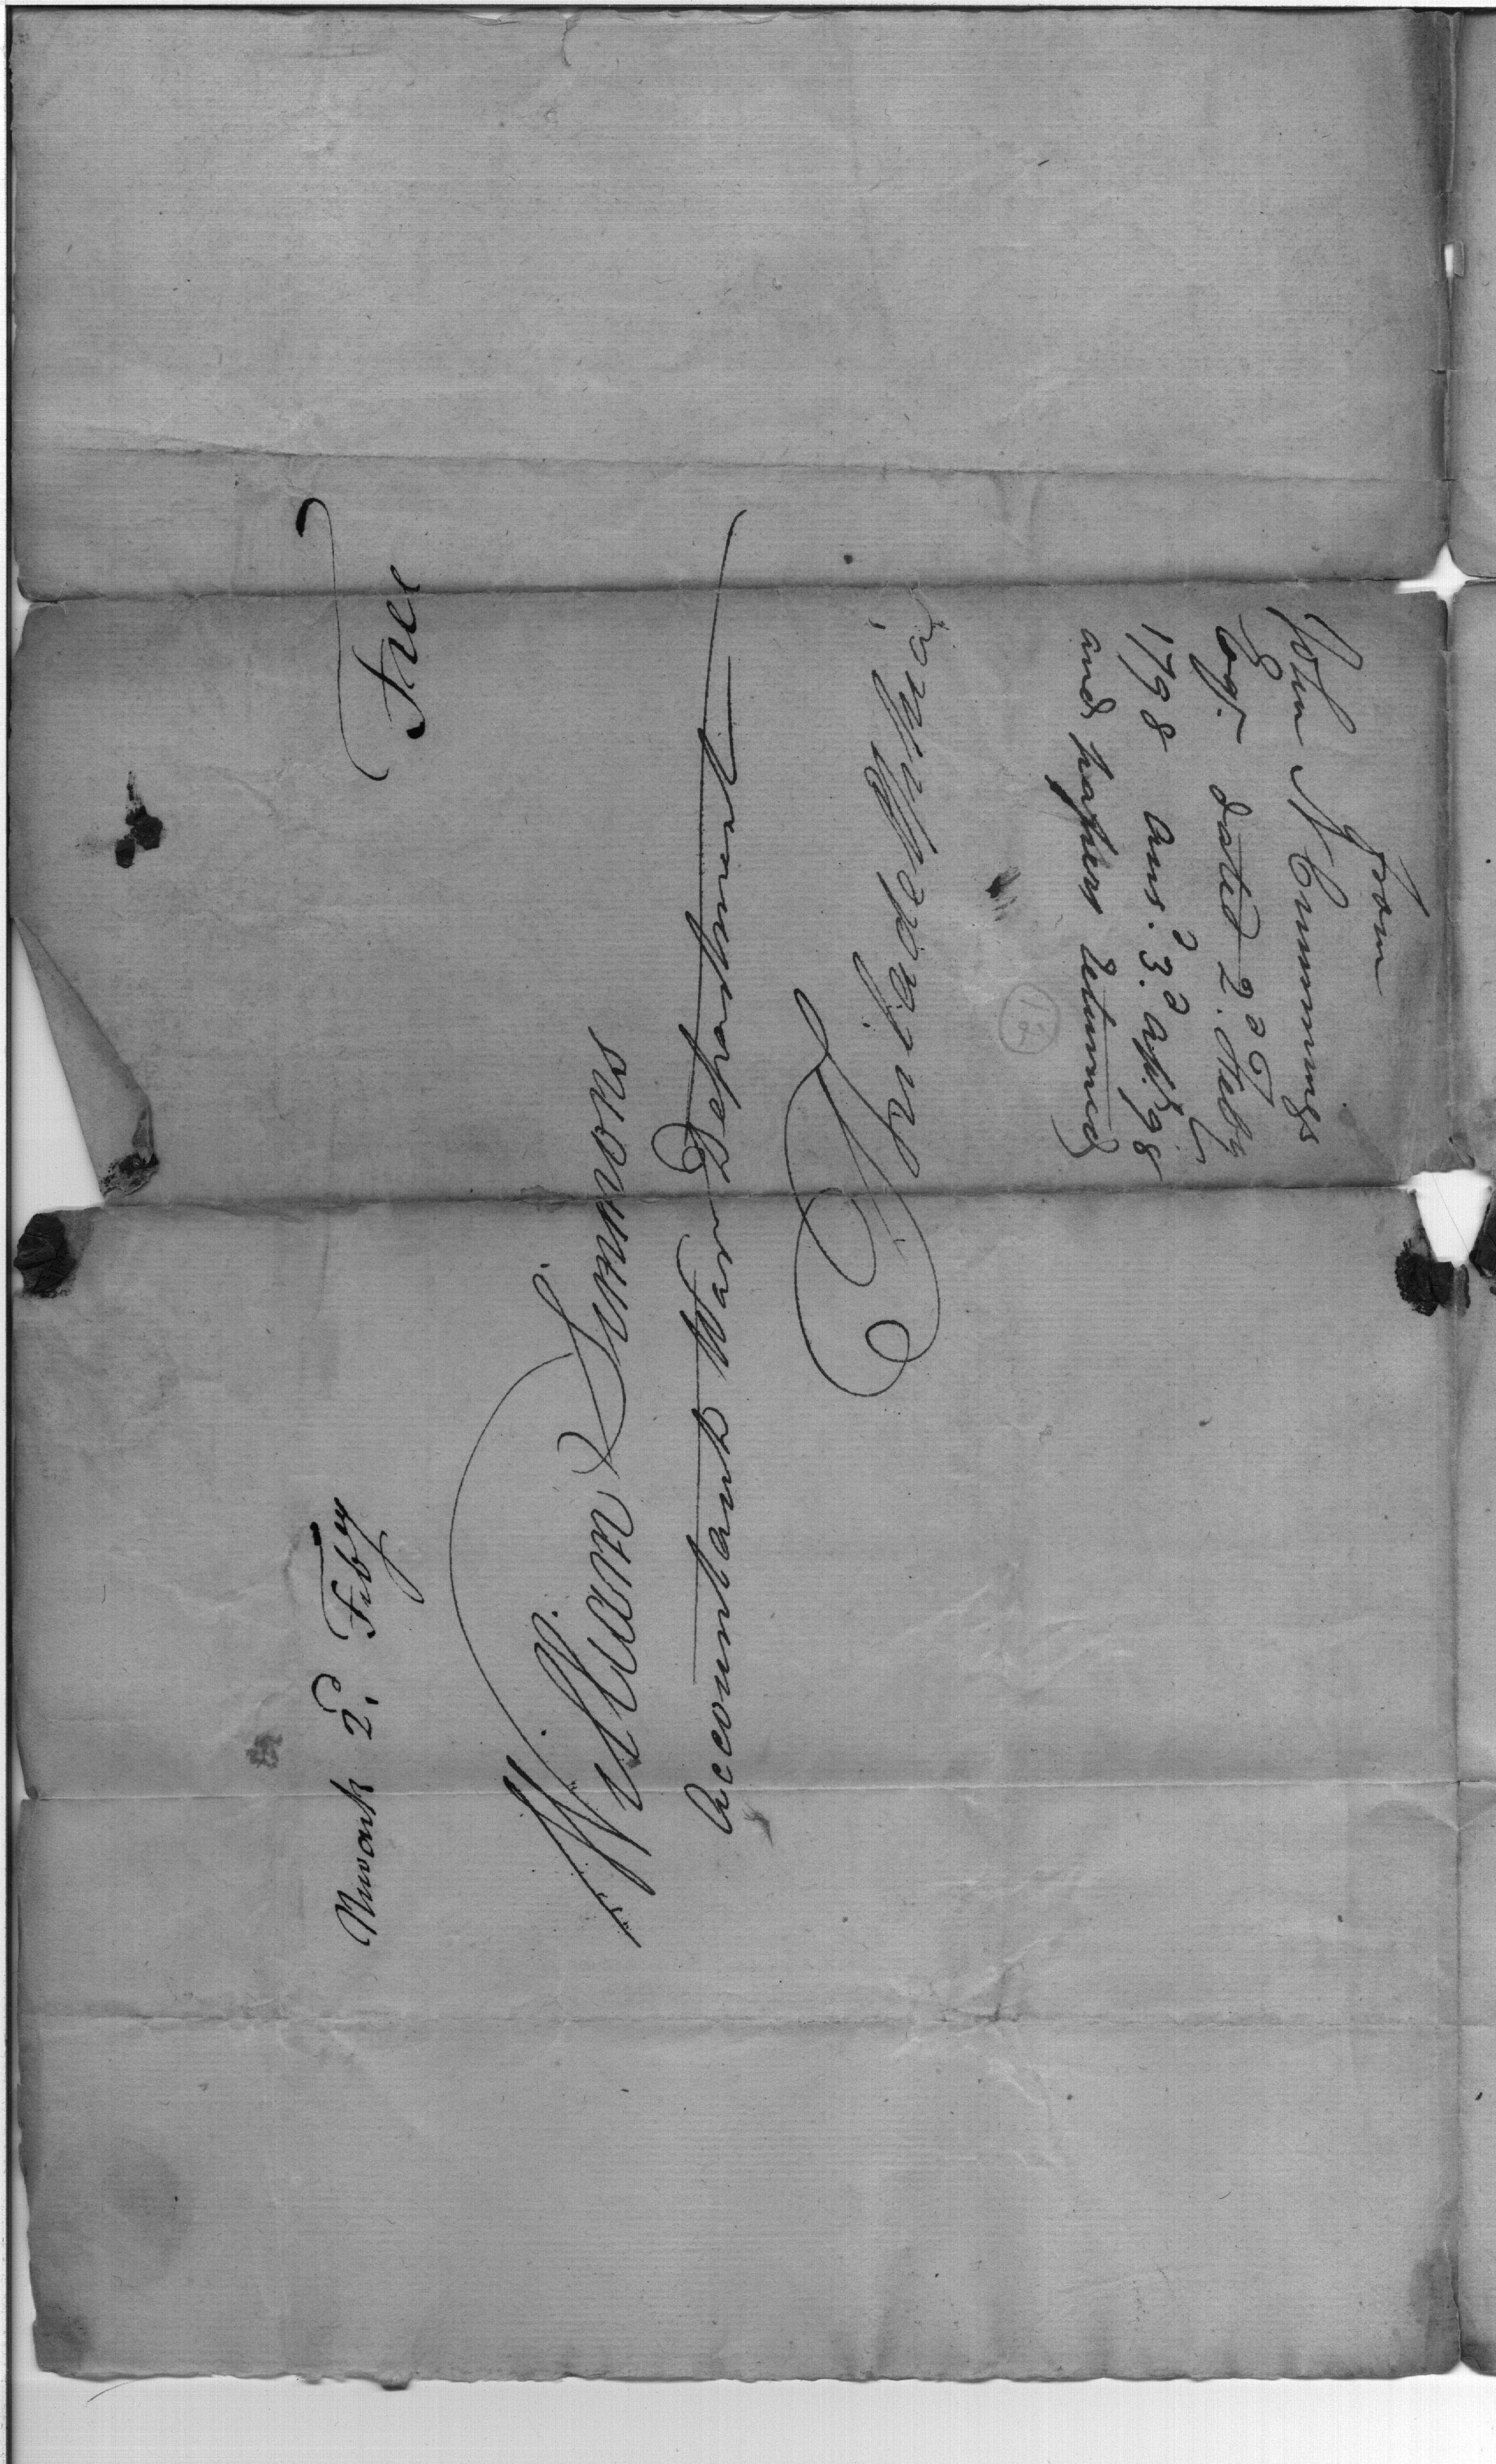 Newark 2.d Feby
Free
William Simmons
Accountant War Department
Philadelphia,
From
John N Cummings
Esqr. dated 2.d Feby
1798 ansd. 3.d Apl. 98
and papers returned